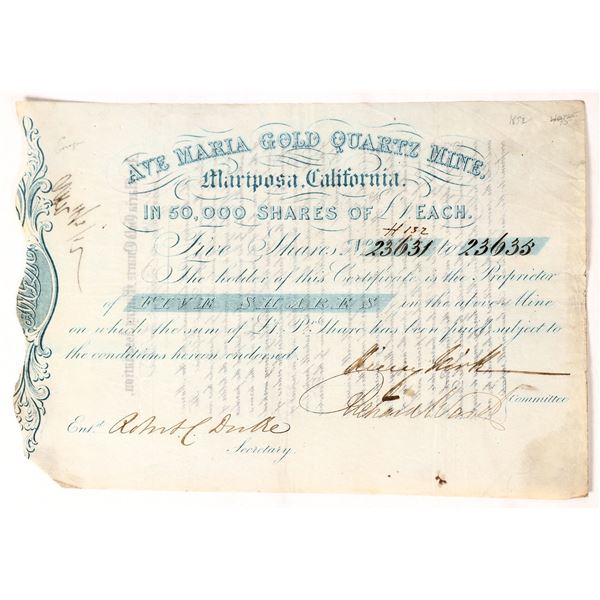 1852
AVE MARIA GOLD QUARTZ MINE,
Mariposa, California.
IN 50,000 SHARES OF £1. EACH.
# 132
Five Shares, No 23631 to 23635
The holder of this Certificate is the Proprietor
of FIVE SHARES in the above Mine
on which the sum of £1. Pr. Share has been paid, subject to
the conditions hereon endorsed.
Henry Kirk
Committee
Entd. Robert C Drake
Secretary.